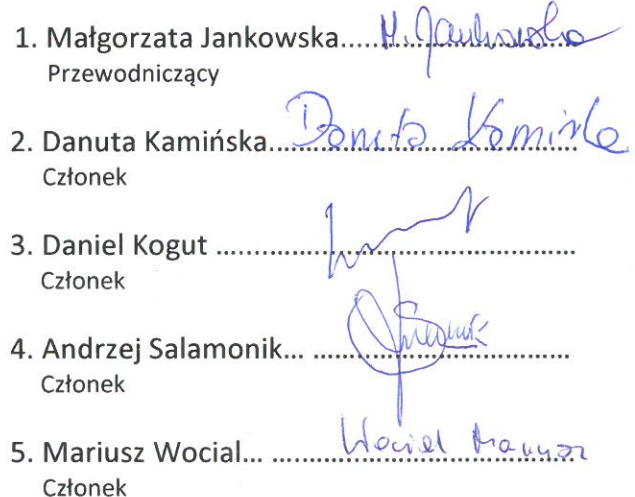 1. Małgorzata Jankowska..... M. Jankowska
Przewodniczący
2. Danuta Kamińska..... Danuta Kamińska
Członek
3. Daniel Kogut .....
Członek
4. Andrzej Salamonik... .....
Członek
5. Mariusz Wocial... ..... Wocial Mariusz
Członek